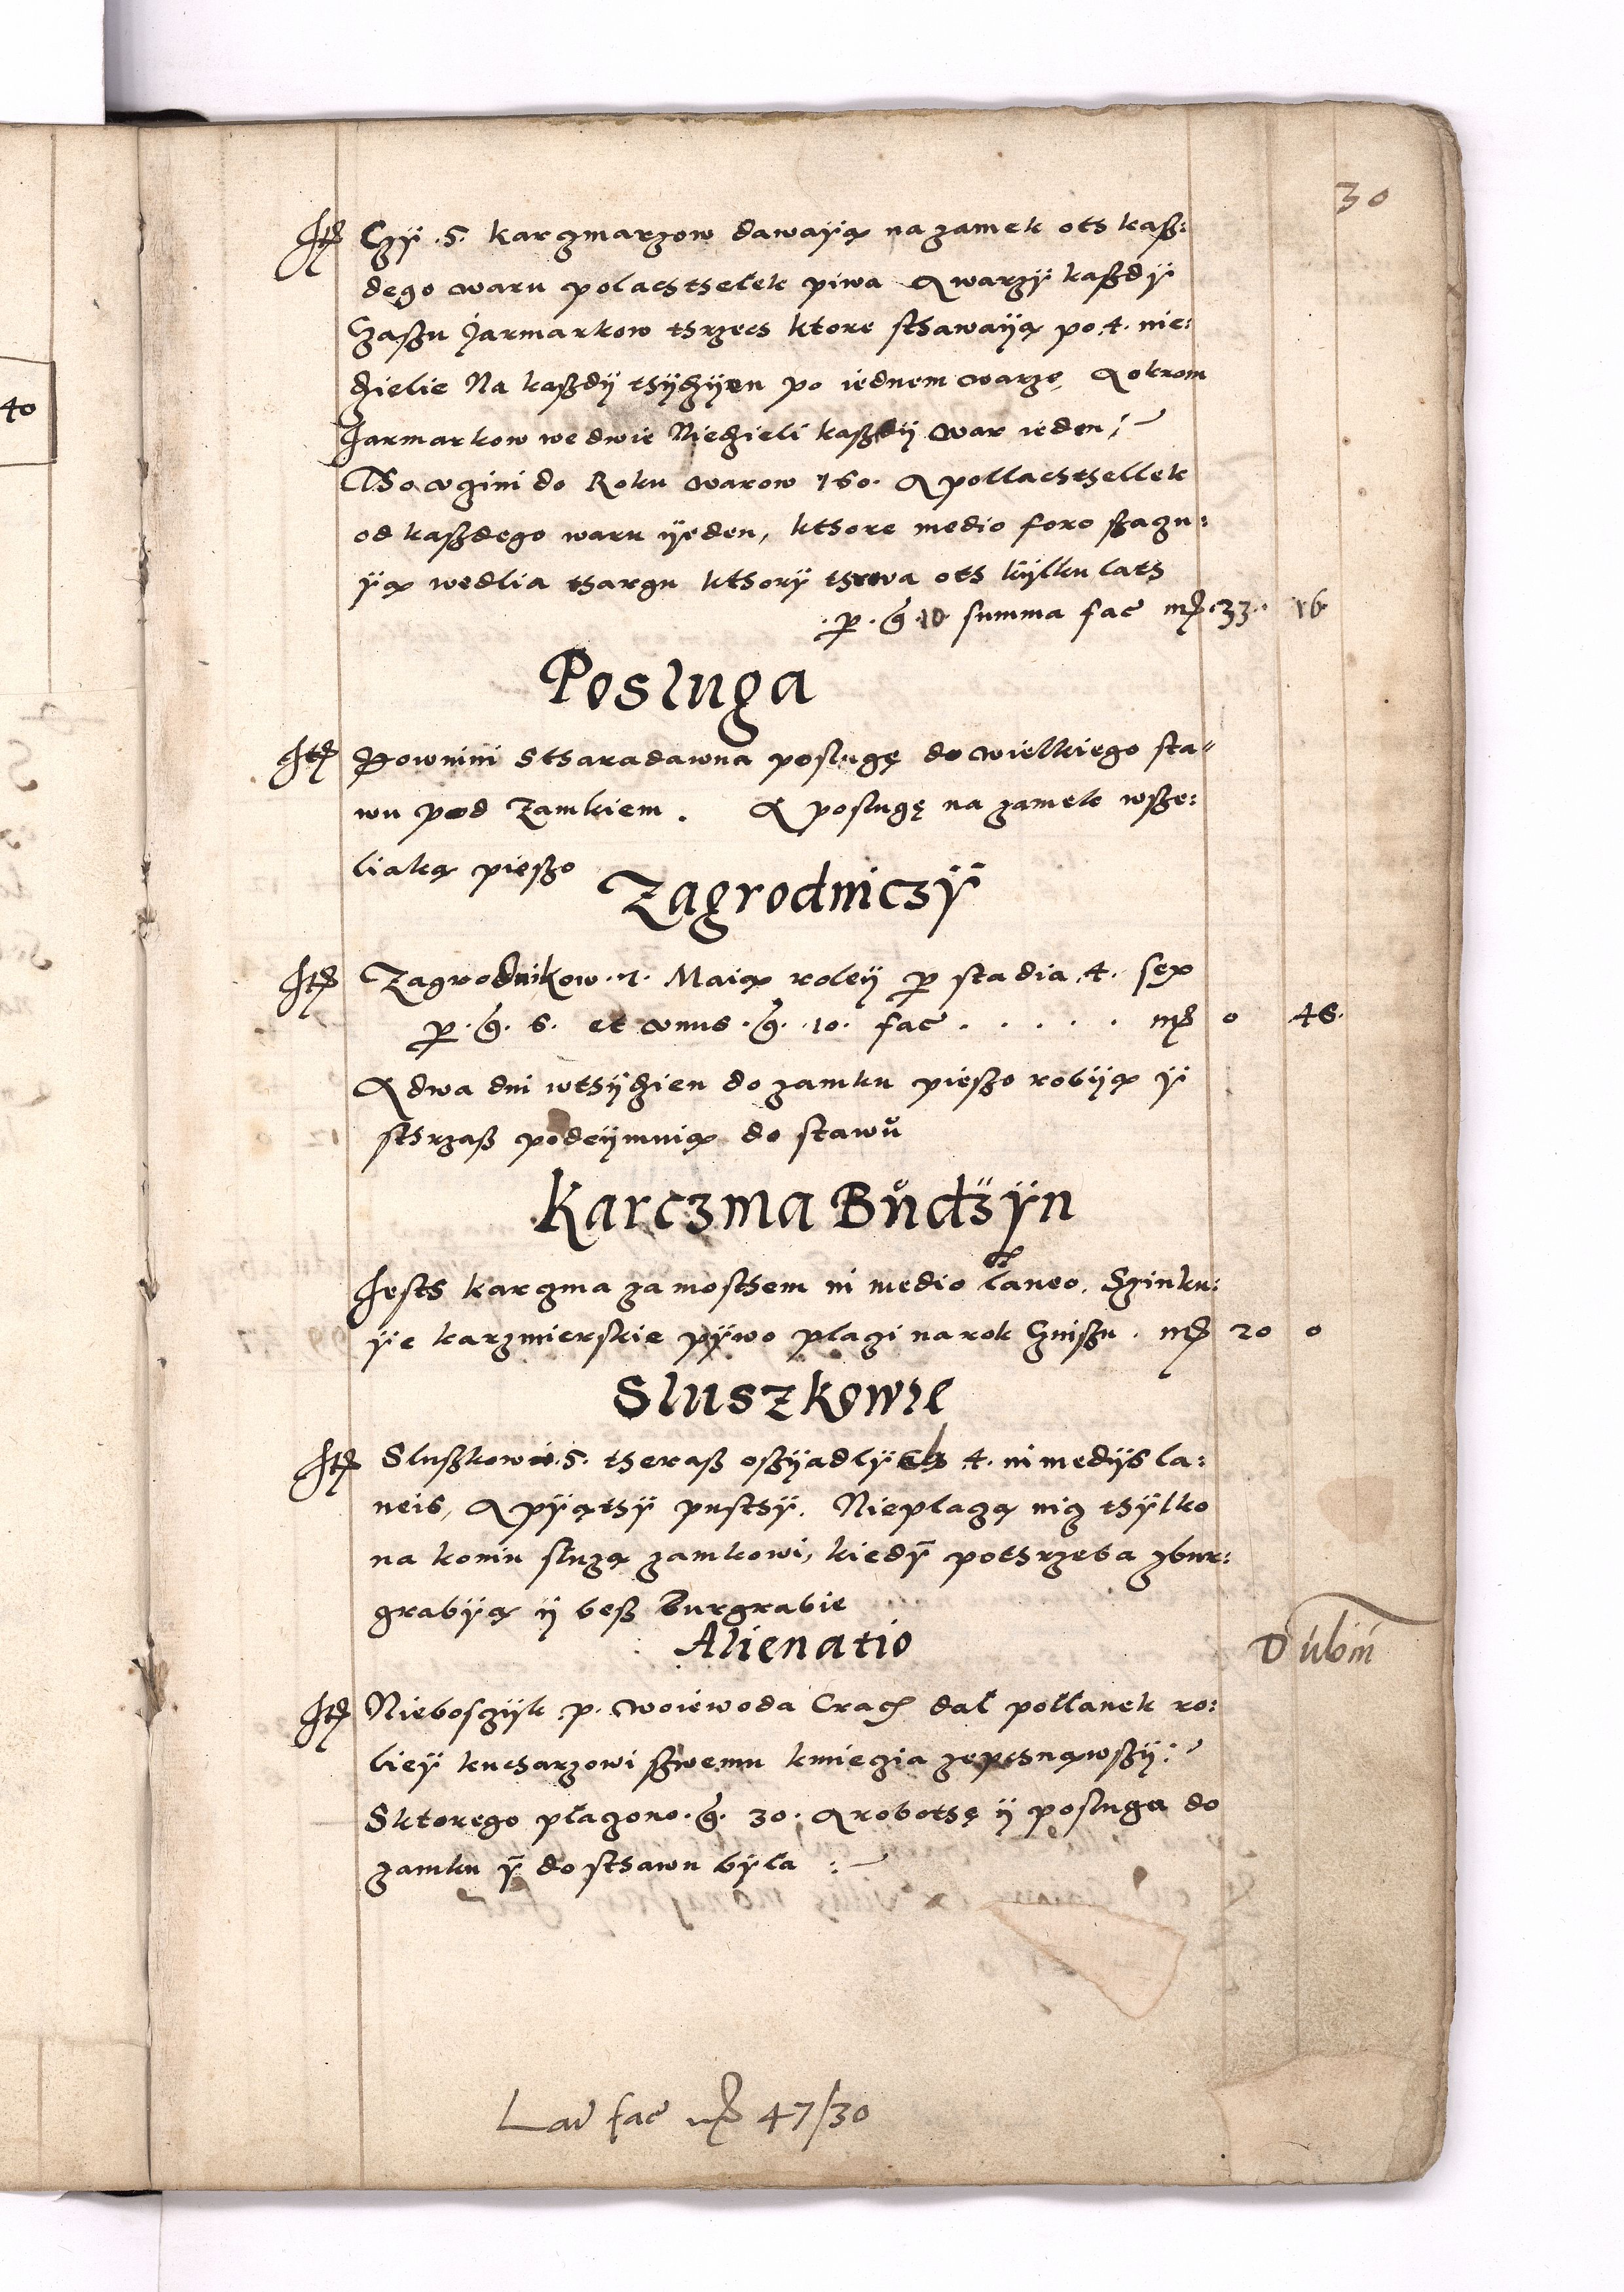 30
40
Itē Czÿ .5. karczmarzow dawaÿą na zamek ots kasz:
dego waru polachtselek piwa A warzÿ kaszdÿ
Czaszu Jarmarkow tsrzech ktore sthawaiją po .4. nie:
dzielie Na kaszdÿ tsÿdzÿen po iednem warze, A okrom
Jarmarkow we dwie Niedzieli kaszdÿ war ieden;
Tso vczini do Roku warow 160. A pollachtsellek
od kaszdego waru ÿeden, ktsore medio foro szaczu:
ÿą wedlia tsargu ktsorÿ tsrwa ots kÿlku lats
.p. g. 10 summa fac mr̄ .33. 16
Posluga
Itē Powinni Stsaradawna poslugę do wielkiego sta:
wu pod Zamkiem. A poslugę na zamek wsze:
liaką pieszo
Zagrodniczÿ
Itē Zagrodnikow .7. Maią roleÿ p stadia .4. sex
p. g. 6. et vnus .g. 10. fac . . . . . mr̄ 0 46.
A dwa dni wtsÿdzien do zamku pieszo robiją ÿ
sthrzasz podeÿmuią do stawů
Karczma Bůdzÿn
Jests karczma za mosthem in medio laneo. Szinku:
ÿe karzmierskie pÿwo placzi na rok Czinszu . mr̄ 20 0
Sluszkowie
Itē Sluszkowie .5. tserasz oszÿadlÿch 4. in medijs la:
neis, A pÿątsÿ pustsÿ. Nieplaczą nicz tsÿlko
na koniu służą zamkowi, kiedÿ potsrzeba zbur:
grabÿą ÿ besz burgrabie
Alienatio
Dubin
Itē Nieboszczÿk .p. woiewoda Crac dał pollanek ro:
lieÿ kucharzowi szwemu kmiezia zepchnąwszÿ:
Sktorego płaczono .g. 30. A robotsę ÿ posluga do
zamku ÿ do sthawu bÿla :
Lat̄ fac mr̄ 47/30